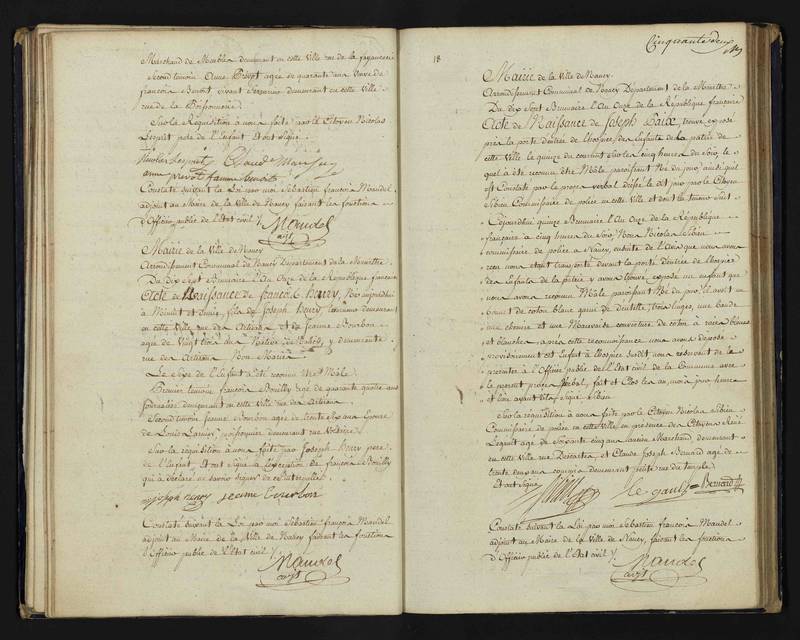 Marchand de Meubles demeurant en cette Ville rue de la fayancerie
Second temoin Anne Prévot agée de quarante ans Veuve de
françois Benoit vivant demeurant en cette Ville
rue de la Poissonnerie
Sur la Réquisition à nous faite par le Citoyen Nicolas
Lesprit pere de l'Enfant Et ont signé
Nicolas Lesprit Claude
anne prevot famme benoit
Constaté suivant la Loi par moi Sébastien françois Mandel
adjoint au Maire de la Ville de Nancy faisant les fonctions
d'Officier public de l'Etat civil
Mandel
adjt
Mairie de la Ville de Nancy
Arrondissement Communal de Nancy Département de la Meurthe
Du dix Sept Brumaire l'An Onze de la République française
Acte de Naissance de françois C. Henry, Né aujourdhui
à Minuit et demie, fils de Joseph Henry, demeurant
en cette Ville rue des Artisans et de Jeanne Bourbon
agée de Vingt trois ans Native de demeurante
rue des Artisans Non Mariée
Le Sexe de l'Enfant a été reconnu être Mâle
Premier temoin françois Bouilly agé de quarante quatre ans
Journalier demeurant en cette Ville rue des Artisans
Second temoin Jeanne Bourbon agée de trente Six ans Epouse
de Louis Larnier poissonnier demeurant rue Voltaire
Sur la réquisition à nous faite par Joseph Henry pere
de l'Enfant, Et ont signé à l'exception de françois Bouilly
qui a déclaré ne savoir signer de ce interpellé
joseph henry jeanne bourbon
Constaté suivant la Loi par moi Sébastien françois Mandel
adjoint au Maire de la Ville de Nancy faisant les fonctions
d'Officier public de l'Etat civil
Mandel
adjt
Cinquante deux
18
Mairie de la Ville de Nancy
Arrondissement Communal de Nancy Département de la Meurthe
Du dix Sept Brumaire l'An Onze de la République française
Acte de Naissance de Joseph trouvé exposé
près la porte d'entrée de l'hospice des Enfants de la patrie de
cette Ville le quinze du courant sur les cinq heures du Soir, le
quel a été reconnu être Mâle paraissant Né du jour, ainsi qu'il
est Constaté par le procès verbal dressé le dit jour par le Citoyen
Sibien Commissaire de police en cette Ville et dont la teneur Suit
Cejourdhui quinze Brumaire l'An Onze de la République
française à cinq heures du Soir, Nous Nicolas Sibien
commissaire de police à Nancy, ensuite de l'avis que nous avons
reçu nous étant transporté devant la porte d'entrée de l'hospice
des Enfants de la patrie y avons trouvé exposé un enfant que
nous avons reconnu Mâle paraissant Né du jour, il avoit un
bonnet de coton blanc garni de dentelle, trois langes, une bande
une chemise et une Mauvaise couverture de coton à raies bleues
et blanches après cette reconnaissance nous avons déposé
provisoirement cet Enfant à l'hospice Susdit nous reservant de le
presenter à l'Officier public de l'Etat civil de la Commune avec
le present procès Verbal, fait et Clos les an, mois, jour, heures
et lieu avant dits signé Sibien
Sur la réquisition à nous faite par le Citoyen Nicolas Sibien
Commissaire de police en cette Ville en presence des Citoyens
Legault agé de Soixante cinq ans ancien Marchand demeurant
en cette Ville rue Descartes et Claude Joseph Bernard agé de
trente deux ans commis demeurant petite rue du temple
Et ont Signé
Sibien Le gault Bernard
Constaté suivant la Loi par moi Sébastien françois Mandel
adjoint au Maire de la Ville de Nancy, faisant les fonctions
d'Officier public de l'Etat civil
Mandel
adjt